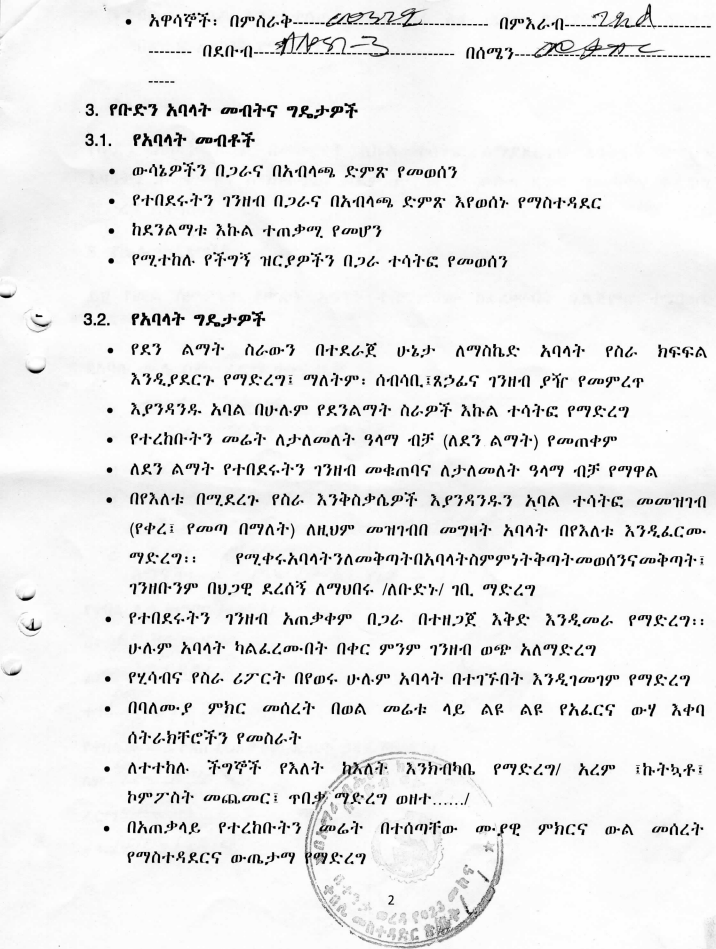 • አዋሳኞች፡ በምስራቅ------ መንገድ ---------------------- በምእራብ-----------------------
-------- በደቡብ----------------------------- በሰሜን-----------------------------
-----
3. የቡድን አባላት መብትና ግዴታዎች
3.1. የአባላት መብቶች
• ውሳኔዎችን በጋራና በአብላጫ ድምጽ የመወሰን
• የተበደሩትን ገንዘብ በጋራና በአብላጫ ድምጽ እየወሰኑ የማስተዳደር
• ከደንልማቱ እኩል ተጠቃሚ የመሆን
• የሚተከሉ የችግኝ ዝርያዎችን በጋራ ተሳትፎ የመወሰን
3.2. የአባላት ግዴታዎች
• የደን ልማት ስራውን በተደራጀ ሁኔታ ለማስኬድ አባላት የስራ ክፍፍል
እንዲያደርጉ የማድረግ፤ ማለትም፡ ሰብሳቢ፤ጸኃፊና ገንዘብ ያዥ የመምረጥ
• እያንዳንዱ አባል በሁሉም የደንልማት ስራዎች እኩል ተሳትፎ የማድረግ
• የተረከቡትን መሬት ለታለመለት ዓላማ ብቻ (ለደን ልማት) የመጠቀም
• ለደን ልማት የተበደሩትን ገንዘብ መቁጠባና ለታለመለት ዓላማ ብቻ የማዋል
• በየእለቱ በሚደረጉ የስራ እንቅስቃሴዎች እያንዳንዱን አባል ተሳትፎ መመዝገብ
(የቀረ፤ የመጣ በማለት) ለዚህም መዝገብበ መግዛት አባላት በየእለቱ እንዲፈርሙ
ማድረግ፡፡ የሚቀሩአባላትንለመቅጣትበአባላትስምምነትቅጣትመወሰንናመቅጣት፤
ገንዘቡንም በህጋዊ ደረሰኝ ለማህበሩ /ለቡድኑ/ ገቢ ማድረግ
• የተበደሩትን ገንዘብ አጠቃቀም በጋራ በተዘጋጀ እቅድ እንዲመራ የማድረግ፡፡
ሁሉም አባላት ካልፈረሙበት በቀር ምንም ገንዘብ ወጭ አለማድረግ
• የሂሳብና የስራ ሪፖርት በየወሩ ሁሉም አባላት በተገኙበት እንዲገመገም የማድረግ
• በባለሙያ ምክር መሰረት በወል መሬቱ ላይ ልዩ ልዩ የአፈርና ውሃ እቀባ
ሰትራክቸሮችን የመስራት
• ለተተከሉ ችግኞች የእለት ከእለት እንክብካቤ የማድረግ/ አረም ፤ኩትኳቶ፤
ኮምፖስት መጨመር፤ ጥበቃ ማድረግ ወዘተ....../
• በአጠቃላይ የተረከቡትን መሬት በተሰማቸው ሙያዊ ምክርና ውል መሰረት
የማስተዳደርና ውጤታማ የማድረግ
2